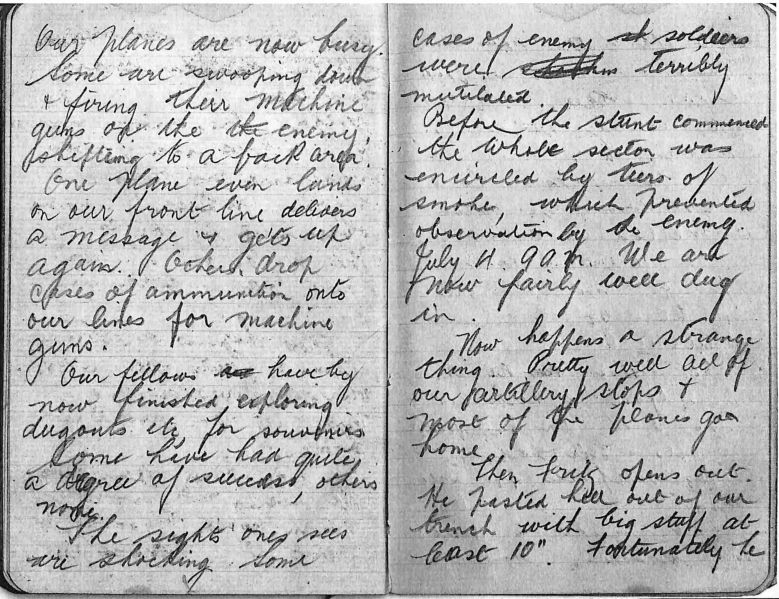 Our planes are now busy.
Some are swooping down
& firing their machine
guns on the the enemy
shifting to a back area.
One plane even lands
on our front line delivers
a message & gets up
again. Others drop
cases of ammunition onto
our lines for machine
guns.
Our fellows as have by
now finished exploring
dugouts etc for souvenirs
Some have had quite
a degree of success, others
none.
The sights ones sees
are shocking some
cases of enemy soldiers
were terribly
mutilated.
Before the stunt commenced
the whole sector was
encircled by tiers of
smoke, which prevented
observation by the enemy.
July 4 9 am. We are
now fairly well dug
in.
Now happens a strange
thing Pretty well all of
our artillery stops &
most of the planes go
home
Then Fritz opens out.
He pasted hell out of our
trench with big stuff at
least 10". Fortunately he